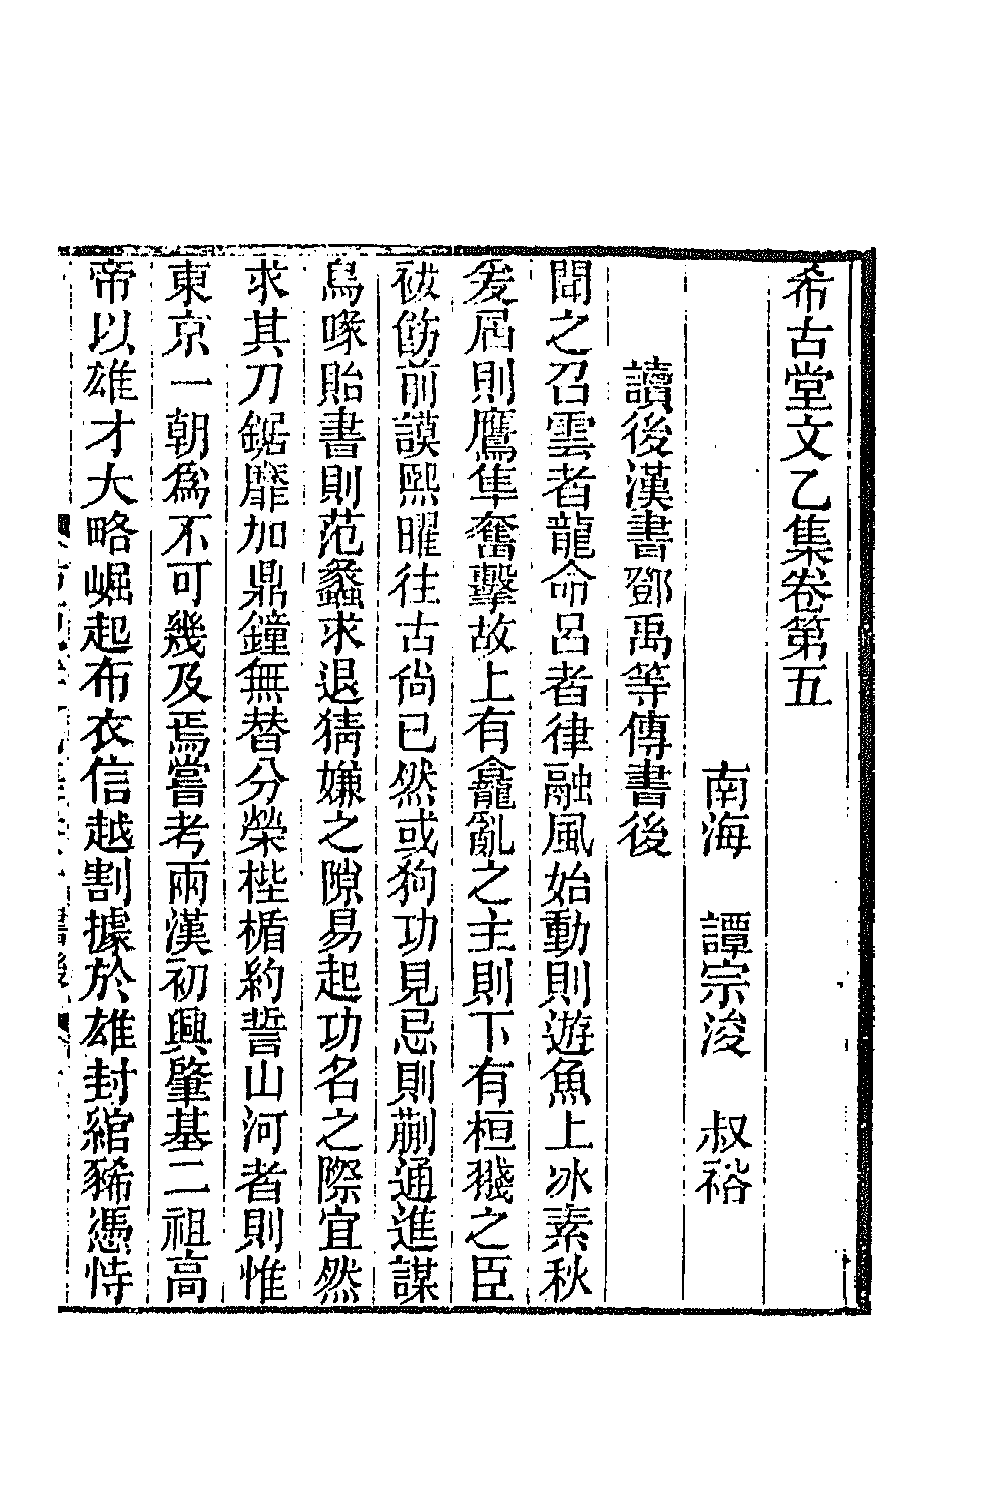 希古堂文乙集卷第五
南海　譚宗浚　叔裕
讀後漢書鄧禹等傳書後
聞之召雲者龍命呂者律融風始動則遊魚上冰素秋
爰屆則鷹隼奮擊故上有龕亂之主則下有桓撥之臣
祓飾前謨熙曜往古尚已然或狗功見忌則蒯通進謀
烏喙貽書則范蠡求退猜嫌之隙易起功名之際宜然
求其刀鋸靡加鼎鐘無替分榮梐楯約誓山河者則惟
東京一朝爲不可幾及焉嘗考兩漢初興肇基二祖高
帝以雄才大略崛起布衣信越割據於雄封綰豨憑恃